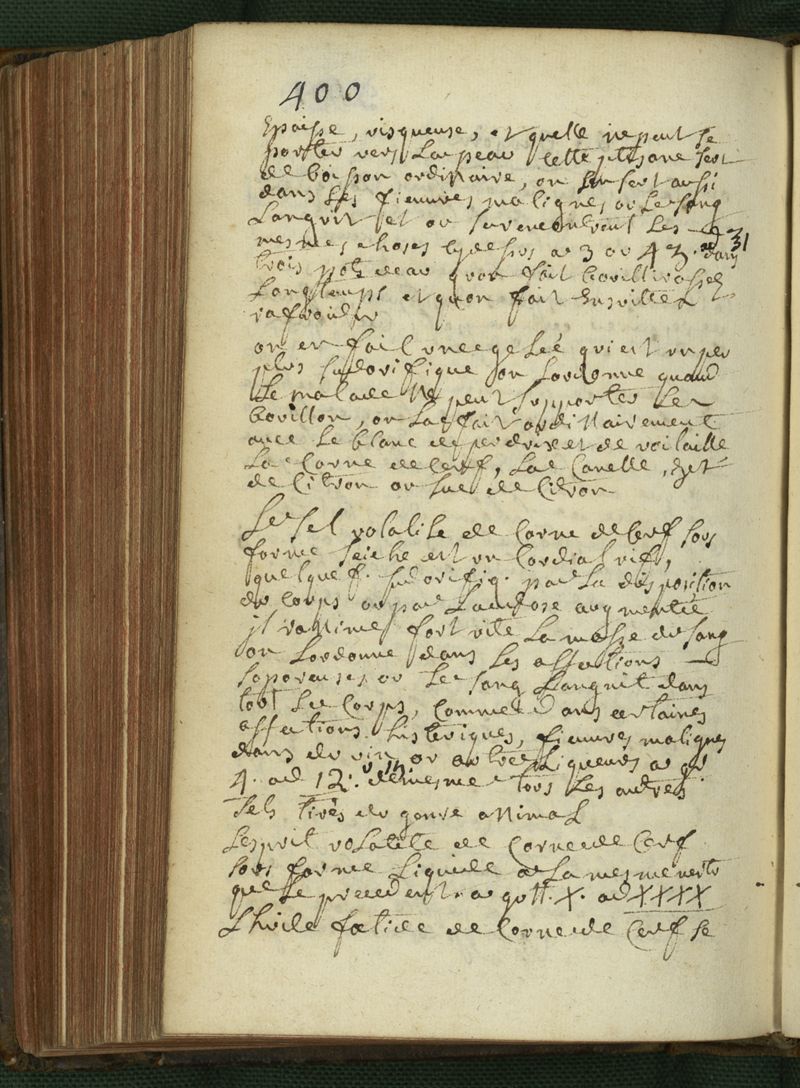 400
Epaisse, visqueuse, et quelle ne peut se
porter vers La peau Cette ptisane sert
de boisson ordinaire, on sen sert aussi
dans Les fieuures malignes ou Le sang
Languit et on
mesmes choses cy dessus a 3 ou 4 ℥. dans
trois pots deau quon fait bouillir assez
Longtemps et quon fait Ensuitte
rafroidir
on en fait une gelée qui est un peu
plus sudorifique on Lordonne quand
Le malade ne peut supporter Le
bouillon, on La fait ordinairement
auec Le blanc de perdrix et de volaille
La Corne de Cerf, La Canelle,
de Citron ou suc de Citron
Le sel volatile de Corne de Cerf sous
forme seiche est un Cordial vif,
quelquef. sudorifiq. par La disposition
du Corps ou par La dose augmentée
jl ranime fort vite La masse du sang
on Lordonne dans Les affections
soporeuses, ou Le sang Languit dans
tout Le Corps, Comme dans certaines
affections histeriques, fieuures malignes
dans du vin ou autres Liqueurs a gr
4. ad 12. de mesme tous Les autres
sels tirés du genre animal
Lesprit volatile de Corne de Cerf
sous forme Liquide a La mesme vertu
que Le precedent. a gutt. X. ad XXXX
Lhuile foetide de Corne de Cerf se